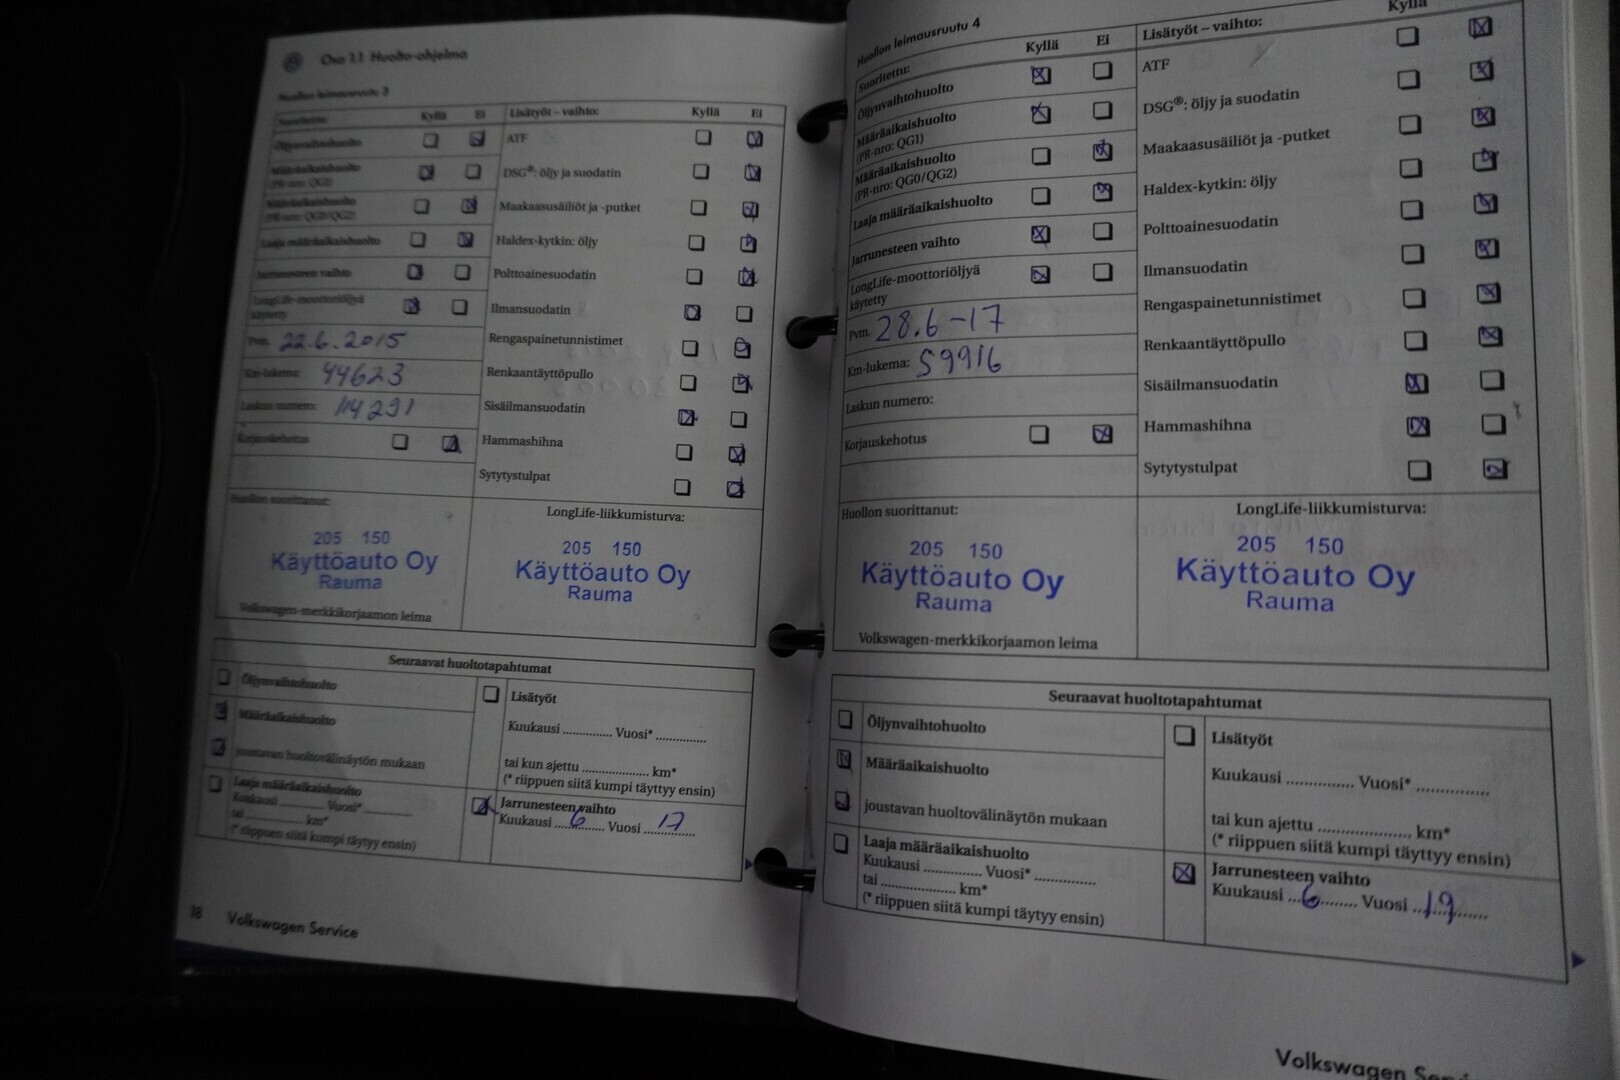 Osa 1.1 Huolto-ohjelma
Huollon leimausruutu 3
Suoritettu: Kyllä Ei
Öljynvaihtohuolto
Määräaikaishuolto
(PR-nro: QG1)
Määräaikaishuolto
(PR-nro: QG0/QG2)
Laaja määräaikaishuolto
Jarrunesteen vaihto
LongLife-moottoriöljyä
käytetty
Pvm. 22.6.2015
Km-lukema: 44623
Laskun numero: 114291
Korjauskehotus
Lisätyöt – vaihto: Kyllä Ei
ATF
DSG®: öljy ja suodatin
Maakaasusäiliöt ja -putket
Haldex-kytkin: öljy
Polttoainesuodatin
Ilmansuodatin
Rengaspainetunnistimet
Renkaantäyttöpullo
Sisäilmansuodatin
Hammashihna
Sytytystulpat
Huollon suorittanut:
205 150
Käyttöauto Oy
Rauma
Volkswagen-merkkikorjaamon leima
LongLife-liikkumisturva:
205 150
Käyttöauto Oy
Rauma
Seuraavat huoltotapahtumat
Öljynvaihtohuolto
Määräaikaishuolto
joustavan huoltovälinäytön mukaan
Laaja määräaikaishuolto
Kuukausi ............ Vuosi* ............
tai .................... km*
(* riippuen siitä kumpi täytyy ensin)
Lisätyöt
Kuukausi ............. Vuosi* .............
tai kun ajettu .................... km*
(* riippuen siitä kumpi täyttyy ensin)
Jarrunesteen vaihto
Kuukausi ....6........ Vuosi ....17........
18 Volkswagen Service
Huollon leimausruutu 4
Suoritettu: Kyllä Ei
Öljynvaihtohuolto
Määräaikaishuolto
(PR-nro: QG1)
Määräaikaishuolto
(PR-nro: QG0/QG2)
Laaja määräaikaishuolto
Jarrunesteen vaihto
LongLife-moottoriöljyä
käytetty
Pvm. 28.6-17
Km-lukema: 59916
Laskun numero:
Korjauskehotus
Lisätyöt – vaihto: Kyllä
ATF
DSG®: öljy ja suodatin
Maakaasusäiliöt ja -putket
Haldex-kytkin: öljy
Polttoainesuodatin
Ilmansuodatin
Rengaspainetunnistimet
Renkaantäyttöpullo
Sisäilmansuodatin
Hammashihna
Sytytystulpat
Huollon suorittanut:
205 150
Käyttöauto Oy
Rauma
Volkswagen-merkkikorjaamon leima
LongLife-liikkumisturva:
205 150
Käyttöauto Oy
Rauma
Seuraavat huoltotapahtumat
Öljynvaihtohuolto
Määräaikaishuolto
joustavan huoltovälinäytön mukaan
Laaja määräaikaishuolto
Kuukausi .............. Vuosi* ..............
tai .................... km*
(* riippuen siitä kumpi täytyy ensin)
Lisätyöt
Kuukausi .............. Vuosi* ................
tai kun ajettu .................... km*
(* riippuen siitä kumpi täyttyy ensin)
Jarrunesteen vaihto
Kuukausi ...6......... Vuosi ..19..........
Volkswagen